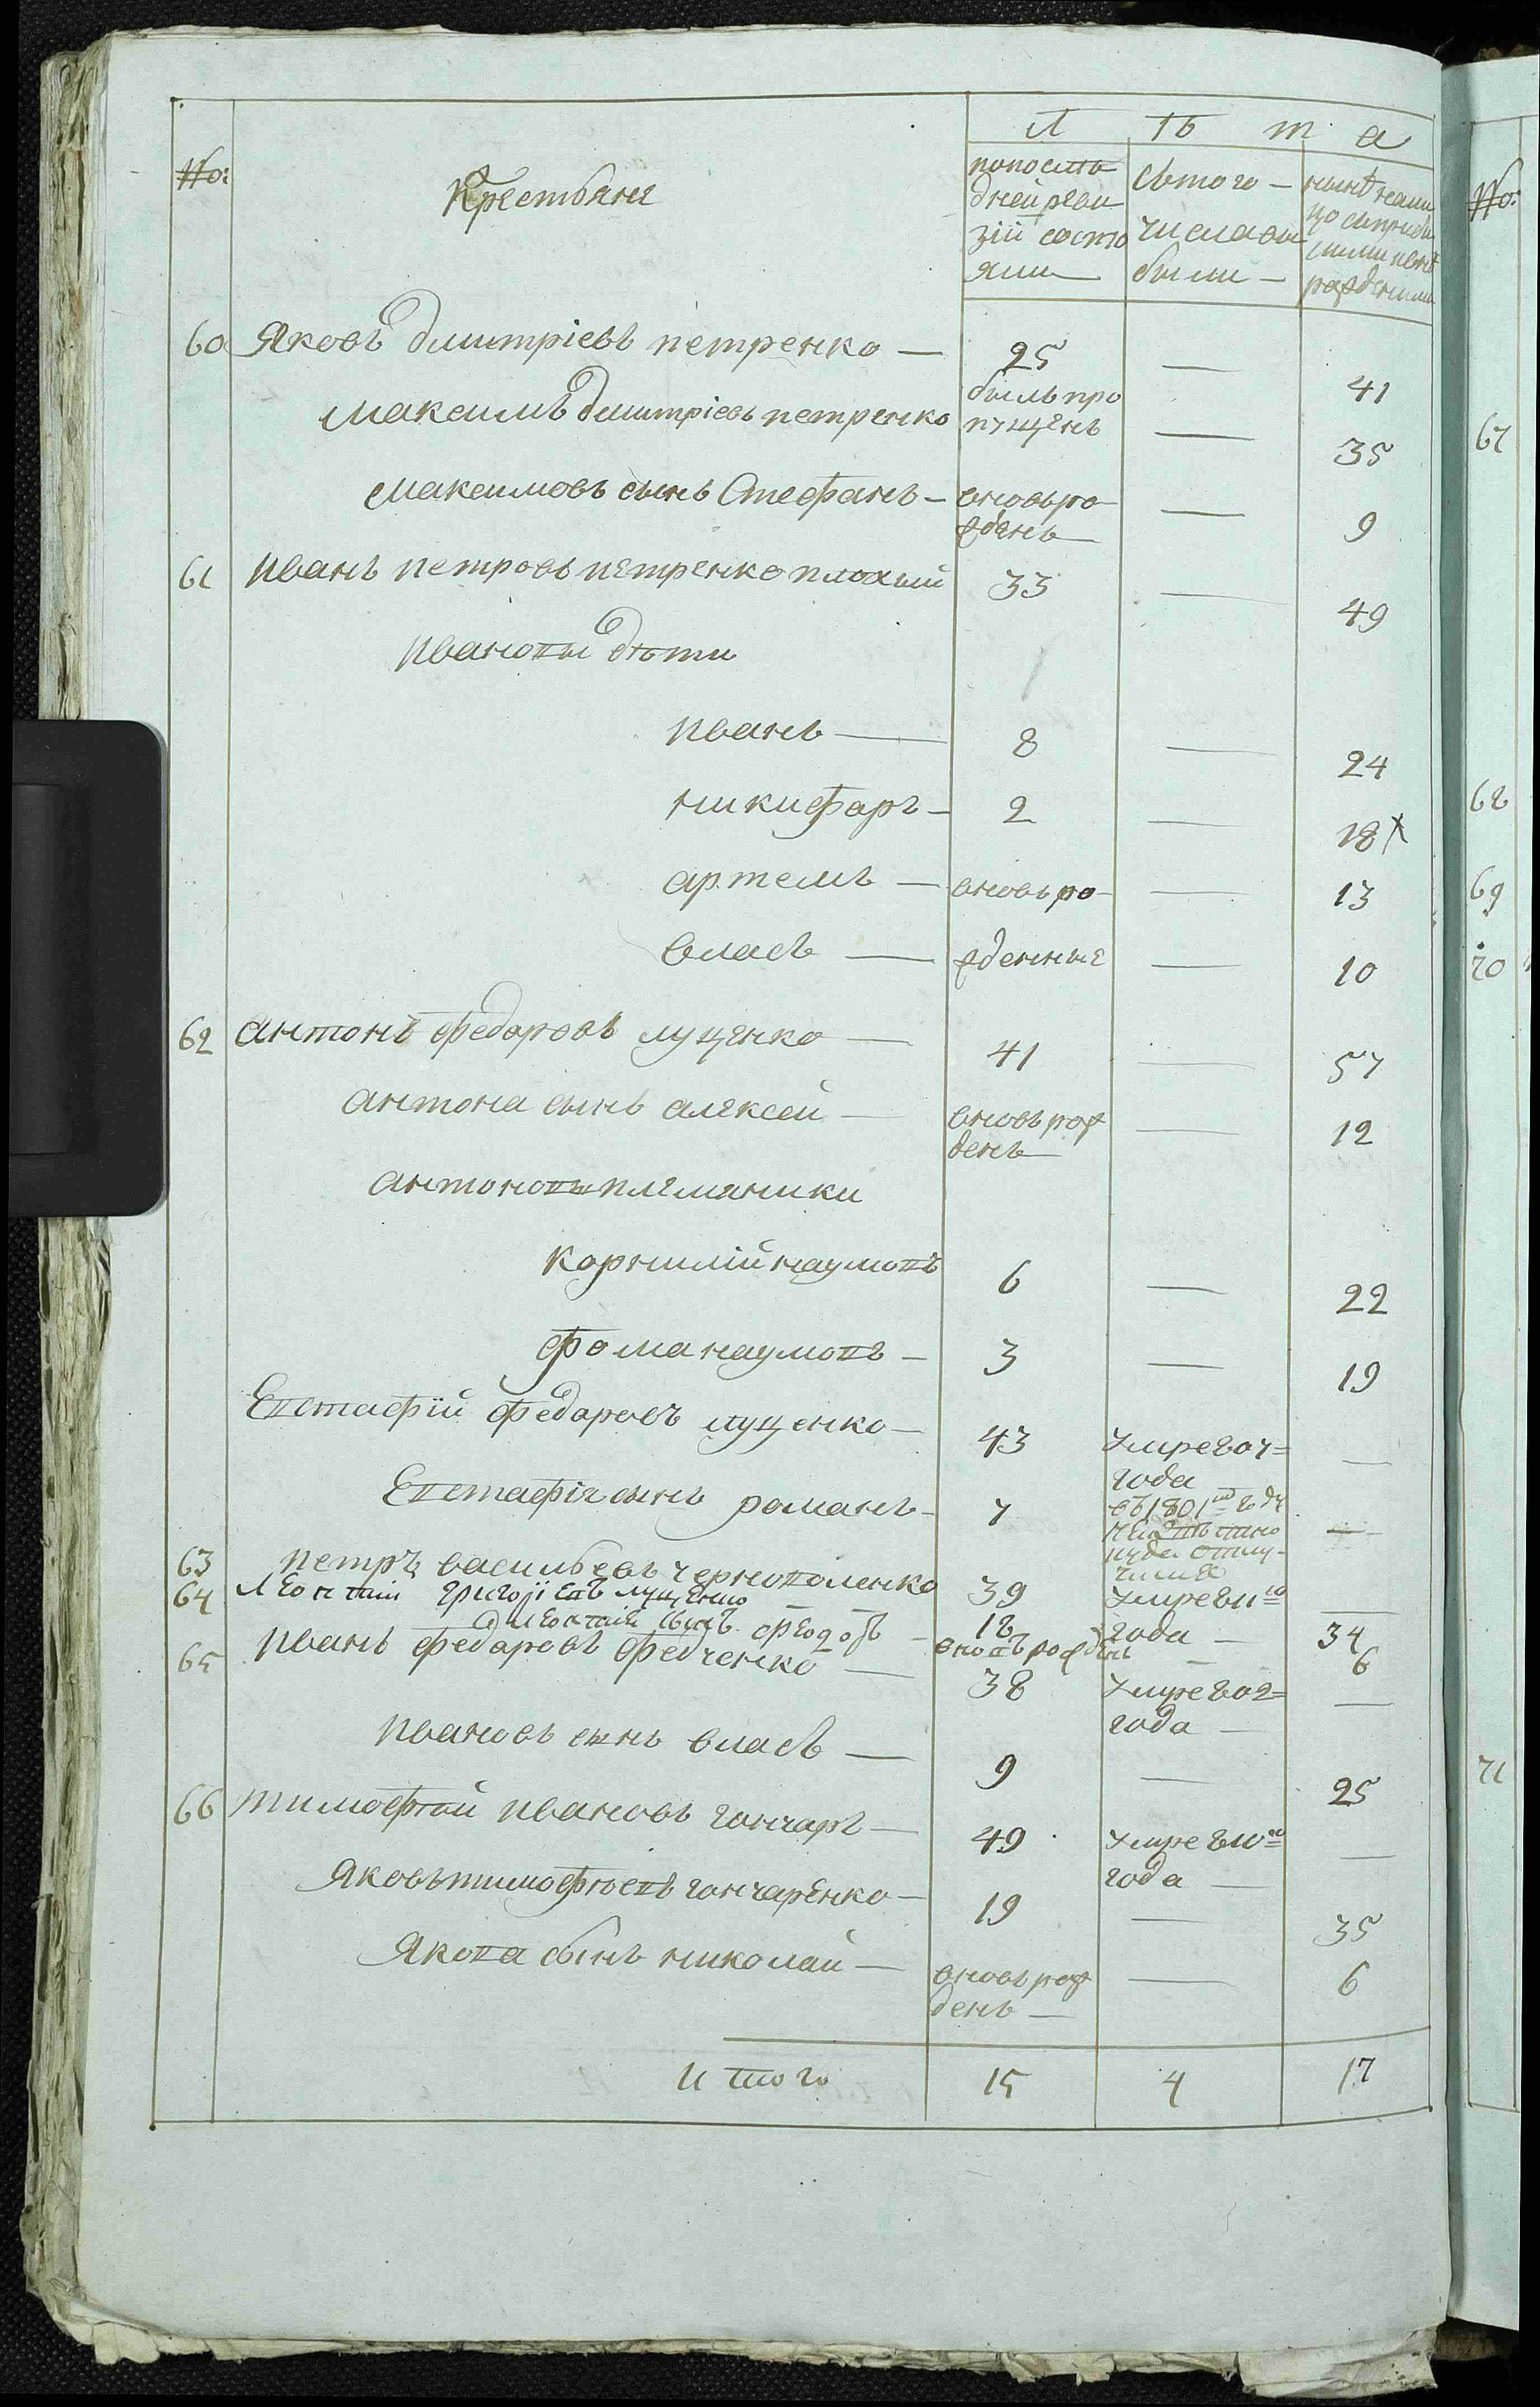 Л ѣ т а
No:
Крестьяне
попослѣ
дней реви
зіи состо
яли
Съ того –
числа вы
были –
нынѣ нали
цо съ прибы
лыми и внов
рожденными
60 Яковъ Дмитріевъ петренко — 25 — 41
Максимъ Дмитріевъ петренко былъ про
пущенъ — 35
Максимовъ сынъ Стефанъ – вновь ро
жденъ — 9
61 Иванъ петровъ петренко плохый 33 — 49
Ивановы дѣти
Иванъ — 8 — 24
Никифаръ – 2 — 18 х
артемъ — вновь ро- — 13
власъ — жденные — 10
62 Антонъ федаровъ луценко — 41 — 57
антона сынъ алексей — вновь рож
денъ — 12
антоновы племяники
корнилій наумовъ 6 — 22
фома наумовъ – 3 — 19
Евстафій федаровъ луценко – 43 умре 807=
года —
Евстафія сынъ романъ – 7 въ 1801м году
неизвѣстно
куда отлу-
чился —
63 петръ васильевъ черноволенко 39 умре 811го
года — —
64 Леонтій григоріевъ луценко 18 34
Леонтія сынъ феодотъ – вновь рожденъ – 6
65 Иванъ федаровъ федченко — 38 умре 802=
года — —
Ивановъ сынъ власъ — 9 — 25
66 тимофѣй ивановъ гончаръ — 49 умре 810го
года — —
Яковъ тимофѣевъ гончаренко – 19 — 35
Якова сынъ николай — вновь рож
денъ — 6
Итого 15 4 17
No:
67
68
69
70
71